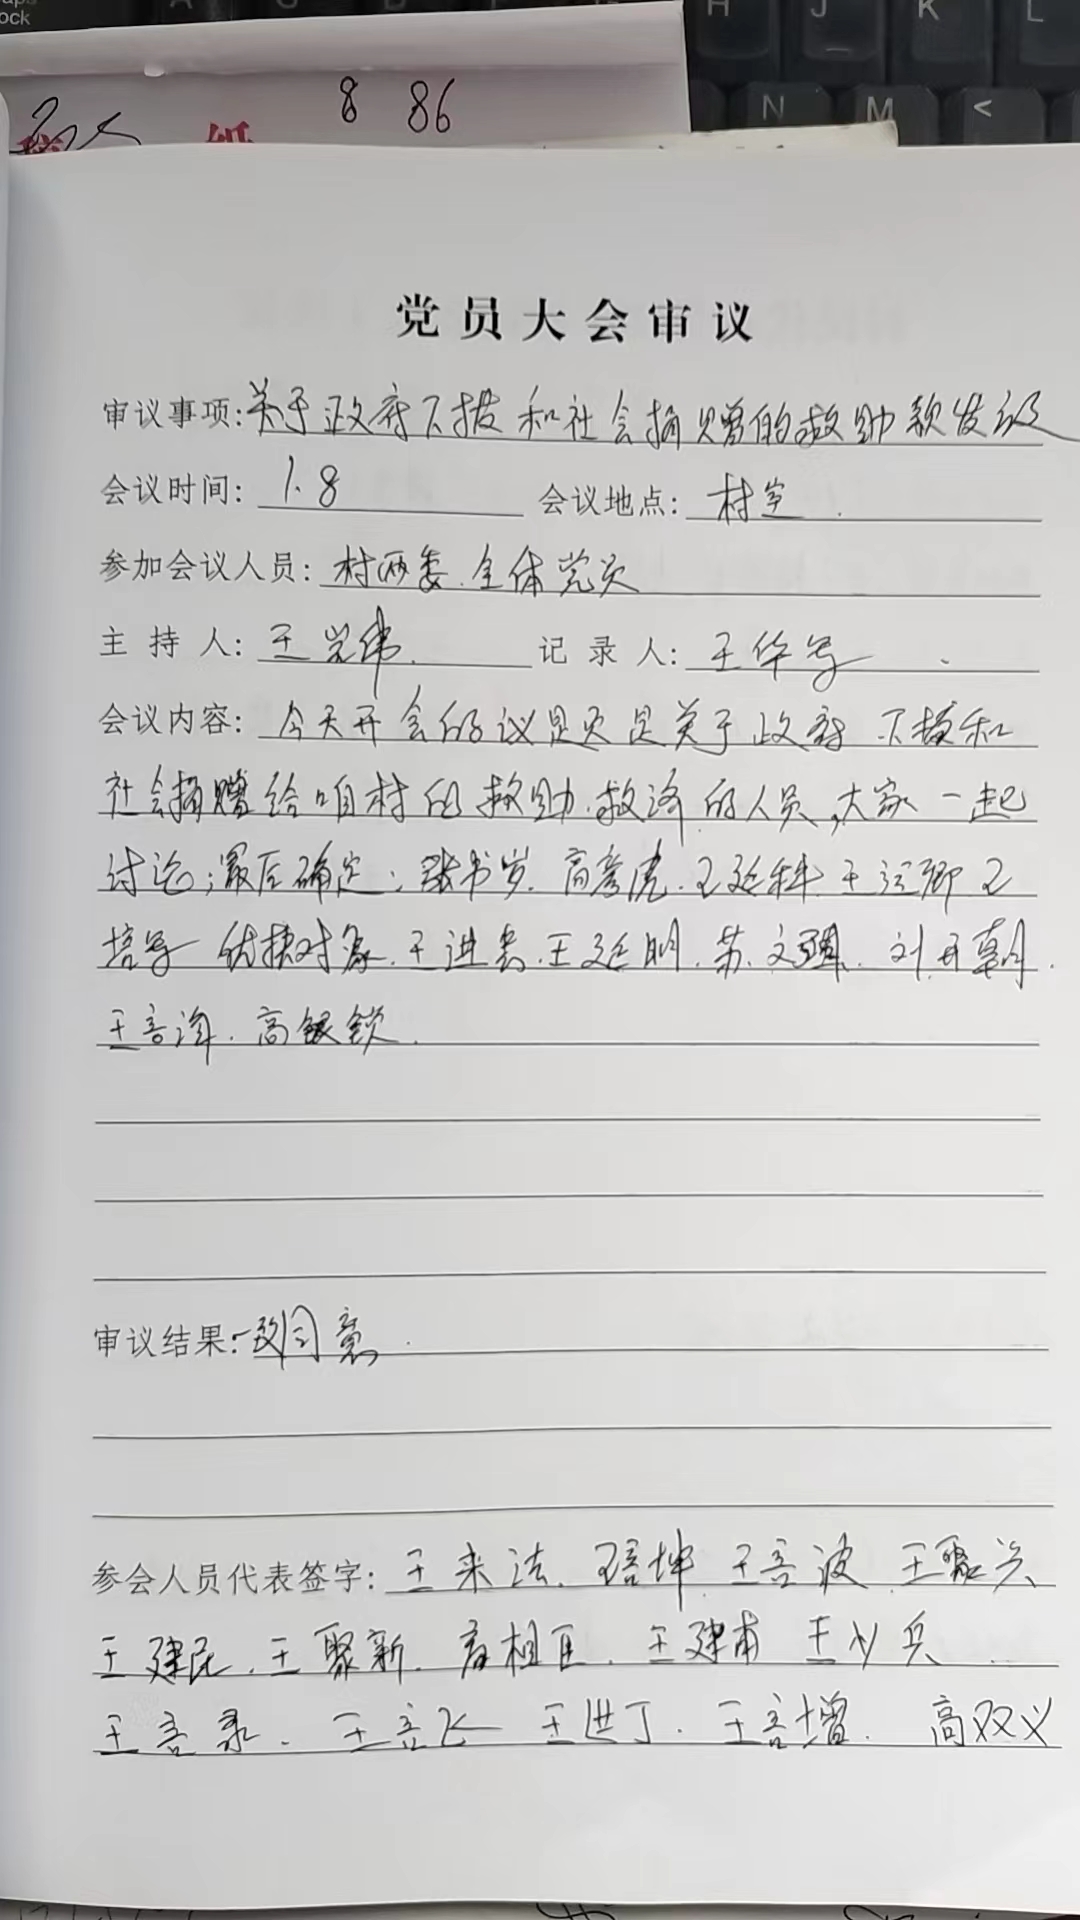 H J K L
N M <
8 86
党员大会审议
审议事项:关于政府下拨和社会捐赠的救助款发放
会议时间: 1.8 会议地点: 村室.
参加会议人员: 村两委.全体党员
主持人: 王光伟. 记录人: 王华
会议内容: 今天开会的议题是关于政府下拨和
社会捐赠给咱村的救助.救济的人员,大家一起
讨论;最后确定:张书岁.高彦虎.王延科 王 卿 王
培 优扶对象.王进 .王延明.苏文 .刘开朝.
王 .高银锁.
审议结果:一致同意.
参会人员代表签字: 王来法. 坤 王 波 王聚兴
王建民.王聚新. 相臣.王建甫 王 兵
王 录. 王 飞 王进丁.王 增. 高双义